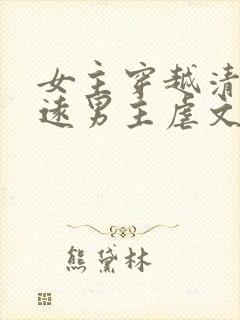 女主穿越清
逺男主虐文
熊黛林